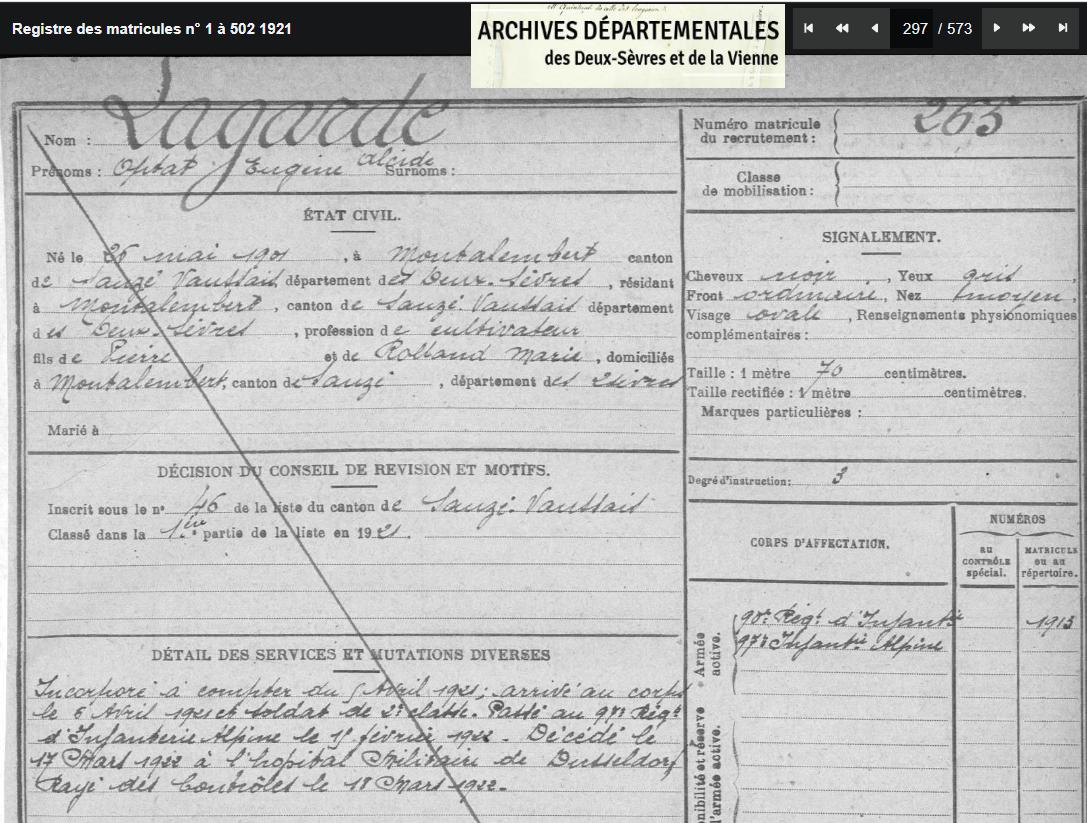 Registre des matricules n° 1 à 502 1921
ARCHIVES DÉPARTEMENTALES
des Deux-Sèvres et de la Vienne
297 / 573
Nom : Lagarde
Prénoms : Optat Eugène Alcide Surnoms :
ÉTAT CIVIL.
Né le 26 mai 1901, à Montalembert canton
de Sauzé Vaussais département des Deux-Sèvres, résidant
à Montalembert, canton de Sauzé-Vaussais département
des Deux-Sèvres, profession de cultivateur
fils de Pierre et de Rolland Marie, domiciliés
à Montalembert, canton de Sauzé, département des 2 Sèvres
Marié à
DÉCISION DU CONSEIL DE REVISION ET MOTIFS.
Inscrit sous le n° 46 de la liste du canton de Sauzé-Vaussais
Classé dans la 1ère partie de la liste en 1921.
DÉTAIL DES SERVICES ET MUTATIONS DIVERSES
Incorporé à compter du Avril 1921; arrivé au corps
le 6 Avril 1921 et soldat de 2e classe. Passé au 97e Régt
d'Infanterie Alpine le février 1922. Décédé le
17 Mars 1922 à l'hopital Militaire de Dusseldorf
Rayé des Contrôles le 18 Mars 1922.
Numéro matricule
du recrutement : 265
Classe
de mobilisation :
SIGNALEMENT.
Cheveux noir, Yeux gris
Front ordinaire, Nez moyen,
Visage ovale, Renseignements physionomiques
complémentaires :
Taille : 1 mètre 70 centimètres.
Taille rectifiée : 1 mètre centimètres.
Marques particulières :
Degré d'instruction : 3
CORPS D'AFFECTATION.
NUMÉROS
au
CONTRÔLE
spécial.
MATRICULE
ou au
répertoire.
Armée
active.
90e Régt d'Infantie 1913
97e Infantie Alpine
onibilité et réserve
l'armée active.